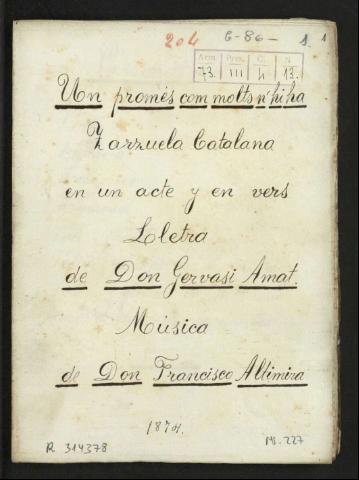 204 6-86- 1. 1
Arm. Pres. C. N.
73. III 4 13.
Un promés com molts n'hi ha
Zarzuela Catalana
en un acte y en vers
Lletra
de Don Gervasi Amat.
Música
de Don Francisco Altimira
1874.
R. 314378
MS. 227